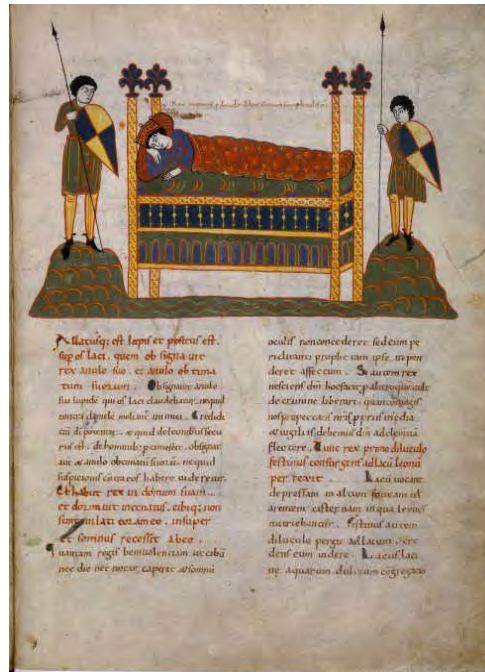 Allatusq; est lapis et positus est
sup os laci. quem obsignavit
rex anulo suo. et anulo optima
tum suorum. Obsignavit anulo
suo lapide qui os laci claudebatur. nequid
contra danihele moliant inimici. Credidit
est. de hominib; ptimescit. obsignat
aut et anulo obtimatu suoru. nequid
suspicionis contra eos habere videretur.
Et habiit rex in domum suam.
et dormivit incenatus. cibiq; non
sunt inlati coram eo. insuper
et somnus recessit ab eo.
Quantam regis benivolentiam ut cibu
nec die nec nocte caperet et somnu
oculis non concederet sed cum pe
riclitante propheta ipse in pen
deret affectum. Si autem rex
nesciens dm hoc facit p altero que vult
de crimine liberari. quanto magis
nos p peccatis nris precibus inedia
et vigiliis debemus dm ad clementia
flectere. Tunc rex primo diluculo
festinus consurgens ad lacu leonu
perrexit. Lacu vocant
depressam in altum foveam vel
arentem cisternam in qua leones
nutriebantur. Festinus autem
diluculo pergit ad lacum cre
dens eum videre. Lacus laci
ne aquarum dulcium cogregatio